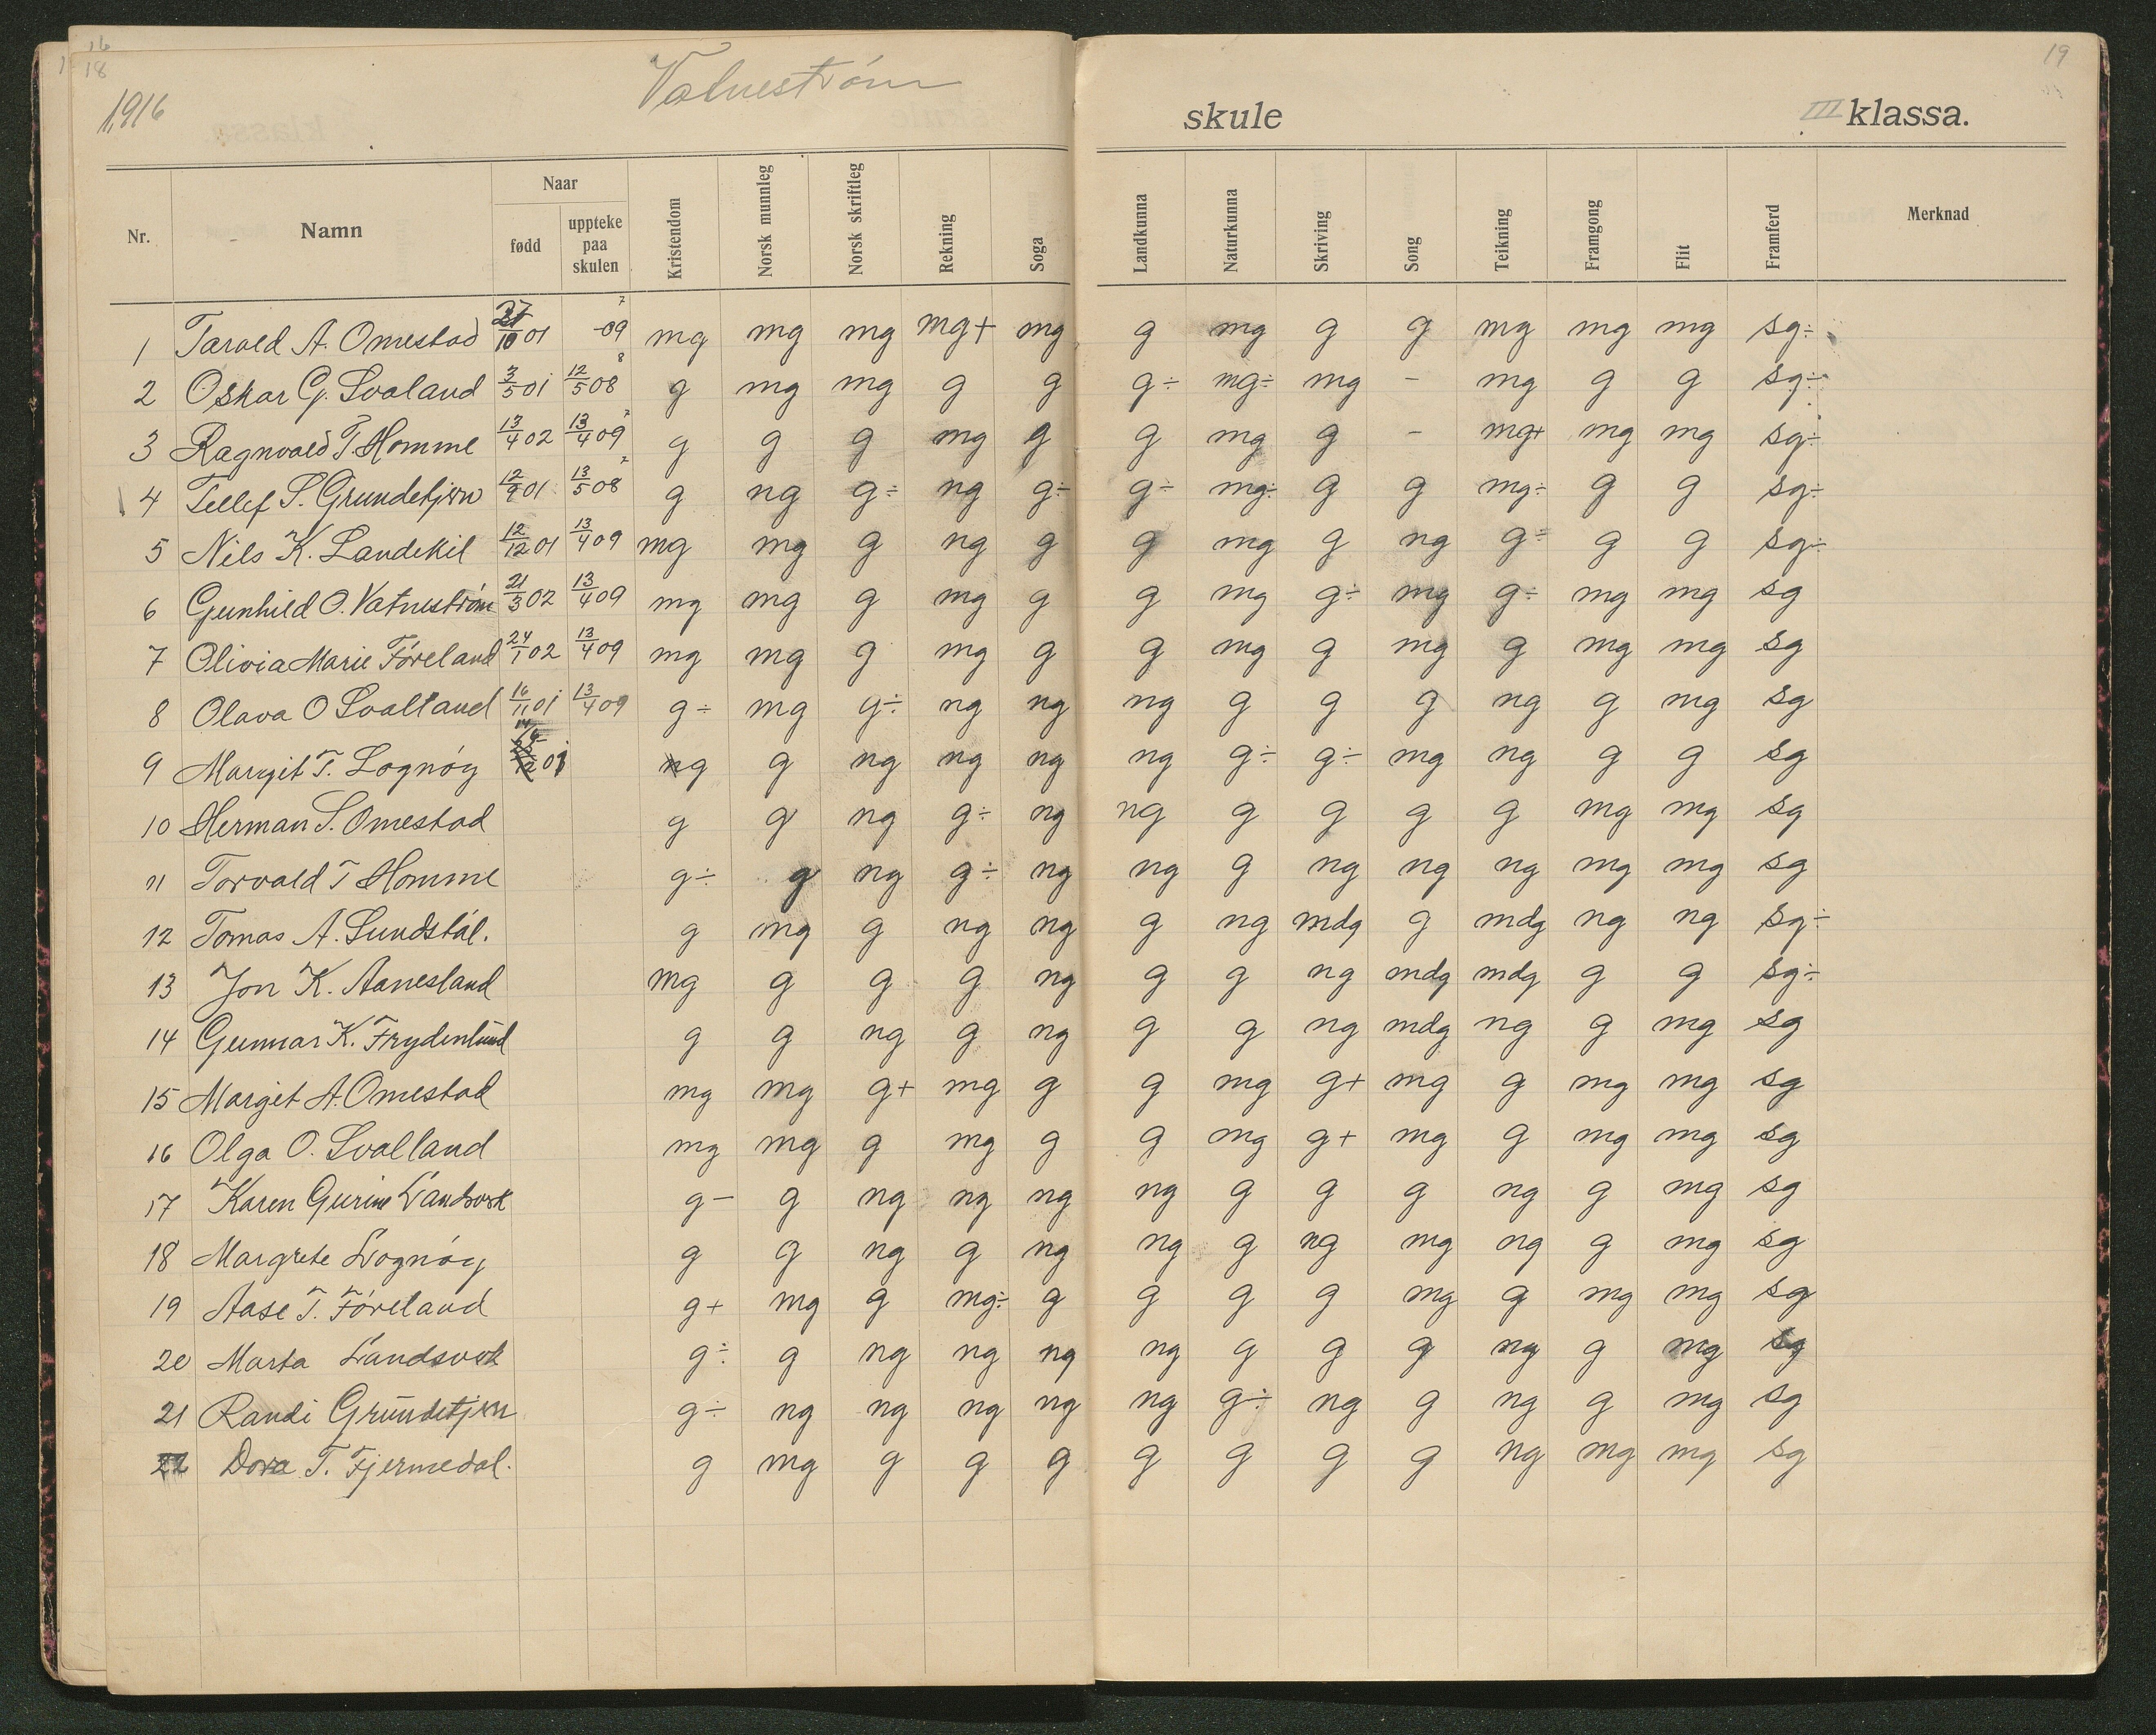 16
18
19
1916
Vatnestrøm skule III klassa.
Nr. Namn Naar fødd uppteke paa skulen Kristendom Norsk munnleg Norsk skriftleg Rekning Soga Landkunna Naturkunna Skriving Song Teikning Framgong Flit Framferd Merknad
1 Tarald A. Omestad 10 01 -09 7 mg mg mg mg+ mg g mg g g mg mg mg sg÷
2 Oskar G. Svaland 3/5 01 12/5 08 8 g mg mg g g g÷ mg÷ mg - mg g g sg÷
3 Ragnvald T. Homme 13/4 02 13/4 09 7 g g g mg g g mg g - mg+ mg mg sg÷
4 Tellef S. Grundetjøn 12/9 01 13/5 08 7 g ng g÷ ng g÷ g÷ mg÷ g g mg÷ g g sg÷
5 Nils K. Landekil 12/12 01 13/4 09 mg mg g ng g g mg g ng g÷ g g sg÷
6 Gunhild O. Vatnestrøm 21/3 02 13/4 09 mg mg g mg g g mg g÷ mg g÷ mg mg sg
7 Olivia Marie Føreland 24/1 02 13/4 09 mg mg g mg g g mg g mg g mg mg sg
8 Olava O Svalland 16/11 01 13/4 09 g÷ mg g÷ ng ng ng g g g ng g mg sg
9 Margit T. Lognøy ng g ng ng ng ng g÷ g÷ mg ng g g sg
10 Herman S. Omestad g g ng g÷ ng ng g g g g mg mg sg
11 Torvald T Homme g÷ g ng g÷ ng ng g ng ng ng mg mg sg
12 Tomas A. Sundstøl. g mg g ng ng g ng mdg g mdg ng ng sg÷
13 Jon K. Aanesland mg g g g ng g g ng mdg mdg g g sg÷
14 Gunnar K. Frydenlund g g ng g ng g g ng mdg ng g mg sg
15 Margit A. Omestad mg mg g+ mg g g mg g+ mg g mg mg sg
16 Olga O. Svalland mg mg g mg g g mg g+ mg g mg mg sg
17 Karen Gurine Landsverk g- g ng ng ng ng g g g ng g mg sg
18 Margrete Lognøy g g ng g ng ng g ng mg ng g mg sg
19 Aase T. Føreland g+ mg g mg÷ g g g g mg g mg mg sg
20 Marta Landsverk g÷ g ng ng ng ng g g g ng g mg sg
21 Randi Grundetjøn g÷ ng ng ng ng ng g÷ ng g ng g mg sg
22 Dora T. Fjermedal. g mg g g g g g g g ng mg mg sg